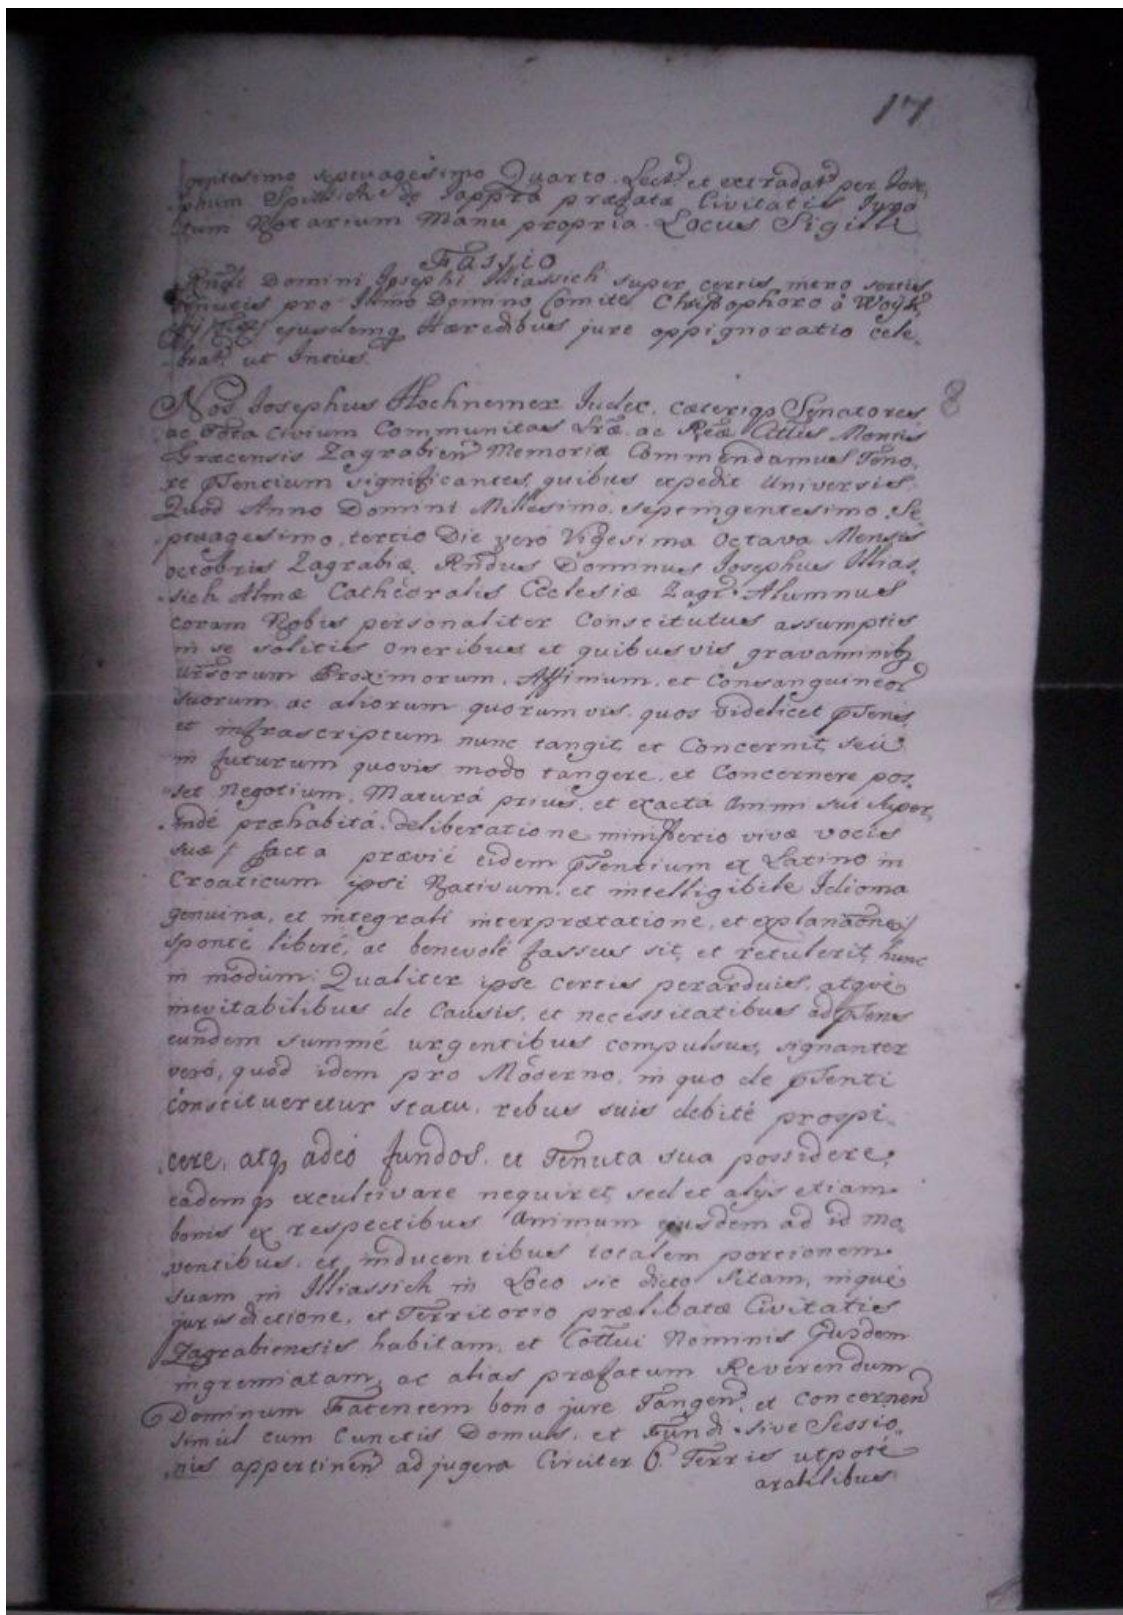 17
gentesimo septuagesimo Quarto. Lect. et extradat. per Jose,
phum Spissich de Jappra præfatæ Civitatis Jura
tum Notarium Manu propria. Locus Sigilli
Fassio
Rndi Domini Josephi Illiassich super certis mero
Tenutis pro Illmo Domino Comite Christophoro à
ejusdemq Hæredibus jure oppignoratio cele,
brat. ut Intus.
8
Nos Josephus Judex, cæteriq Senatores
ac Tota Civium Communitas Lræ. ac Reæ Cttis Montis
Græcensis Zagrabien Memoriæ Commendamus Teno,
re pSentium significantes, quibus expedit Universis.
Quod Anno Domini Millesimo, septingentesimo, Se,
ptuagesimo, tertio Die veró Vigesima Octava Mensis
octobris Zagrabiæ, Rndus Dominus Josephus Illias,
sich Almæ Cathedralis Ecclesiæ Zagr. Alumnus
coram Nobis personaliter Constitutus assumptis
in se solitis oneribus et quibusvis gravaminibq
ursorum Proximorum, Affinium, et Consanguineor
suorum, ac aliorum quorumvis, quos videlicet pSens
et infrascriptum nunc tangit et Concernit, seú
in futurum quovis modo tangere, et Concernere pos,
set Negotium, Maturá prius, et exactá animi sui super
indé præhabitá, deliberatione ministerio vivæ vocis
suæ / facta prævié eidem pSentium ex Latino in
Croaticum ipsi Nativum, et intelligibile Idioma
genuina, et integrali interprætatione, et explanaone /
sponté liberé, ac benevolé fassus sit, et retulerit hunc
in modum: Qualiter ipse certis perarduis, atqué
inevitabilibus de Causis, et necessitatibus ad pSens
eundem summé urgentibus compulsus, signanter
veró, quód idem pro Moderno, in quo de pSenti
constitueretur statu, rebus suis debité prospi,
cere, atq adeó fundos, et Tenuta sua possidere,
eademq excultivare nequiret, sed et alijs etiam
bonis ex respectibus Animum ejusdem ad id mo,
ventibus, et inducentibus totalem portionem
suam in Illiassich in Loco sic dicto sitam, inqué
jurisdictione, et Territorio prælibatæ Civitatis
Zagrabiensis habitam, et Cottui Nominis Ejusdem
ingremiatam, ac alias præfatum Reverendum
Dominum Fatentem bono jure Tangen, et Concernen
simul cum Cunctis Domus, et Fundi, sive Sessio,
nis appertinen ad jugera Circiter 6. Terris utpoté
arabilibus